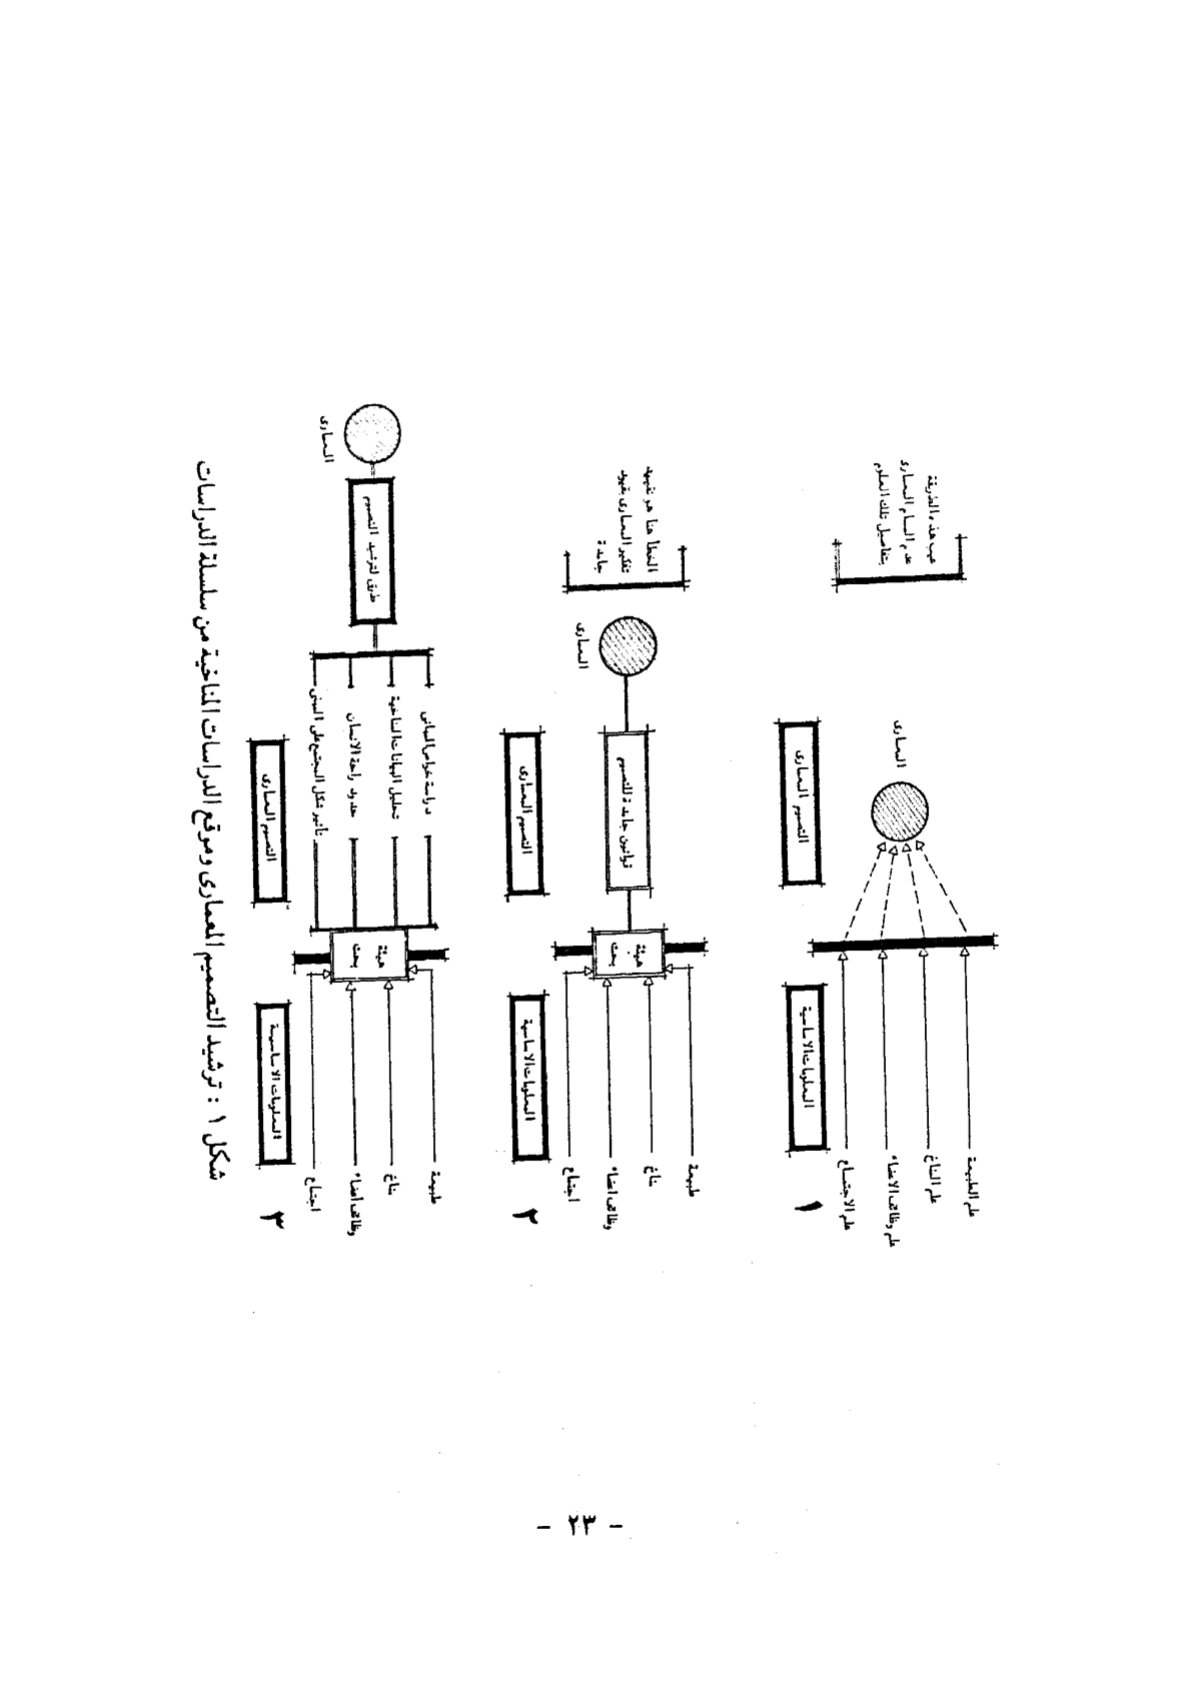 ١
علم الطبيعة
علم المناخ
علم وظائف الاعضاء
علم الاجتماع
المعلومات الاساسية
التصميم المعمارى
المعمارى
عيب هذه الطريقة
عدم المام المعمارى
بتفاصيل تلك العلوم
٢
طبيعة
مناخ
وظائف اعضاء
اجتماع
المعلومات الاساسية
هيئة
بحث
قوانين جامدة للتصميم
التصميم المعمارى
المعمارى
الخطأ هنا هو تقييد
تفكير المعمارى بقيود
جامدة
٣
طبيعة
مناخ
وظائف أعضاء
اجتماع
المعلومات الاساسية
هيئة
بحث
دراسة خواص المبانى
تحليل البيانات المناخية
حدود راحة الانسان
تأثير شكل المجتمع على المبنى
التصميم المعمارى
طرق لترشيد التصميم
المعمارى
شكل ١ : ترشيد التصميم المعمارى وموقع الدراسات المناخية من سلسلة الدراسات
- ٢٣ -